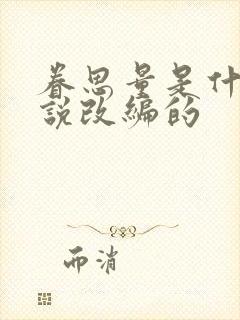 眷思量是什
說改編的
而消